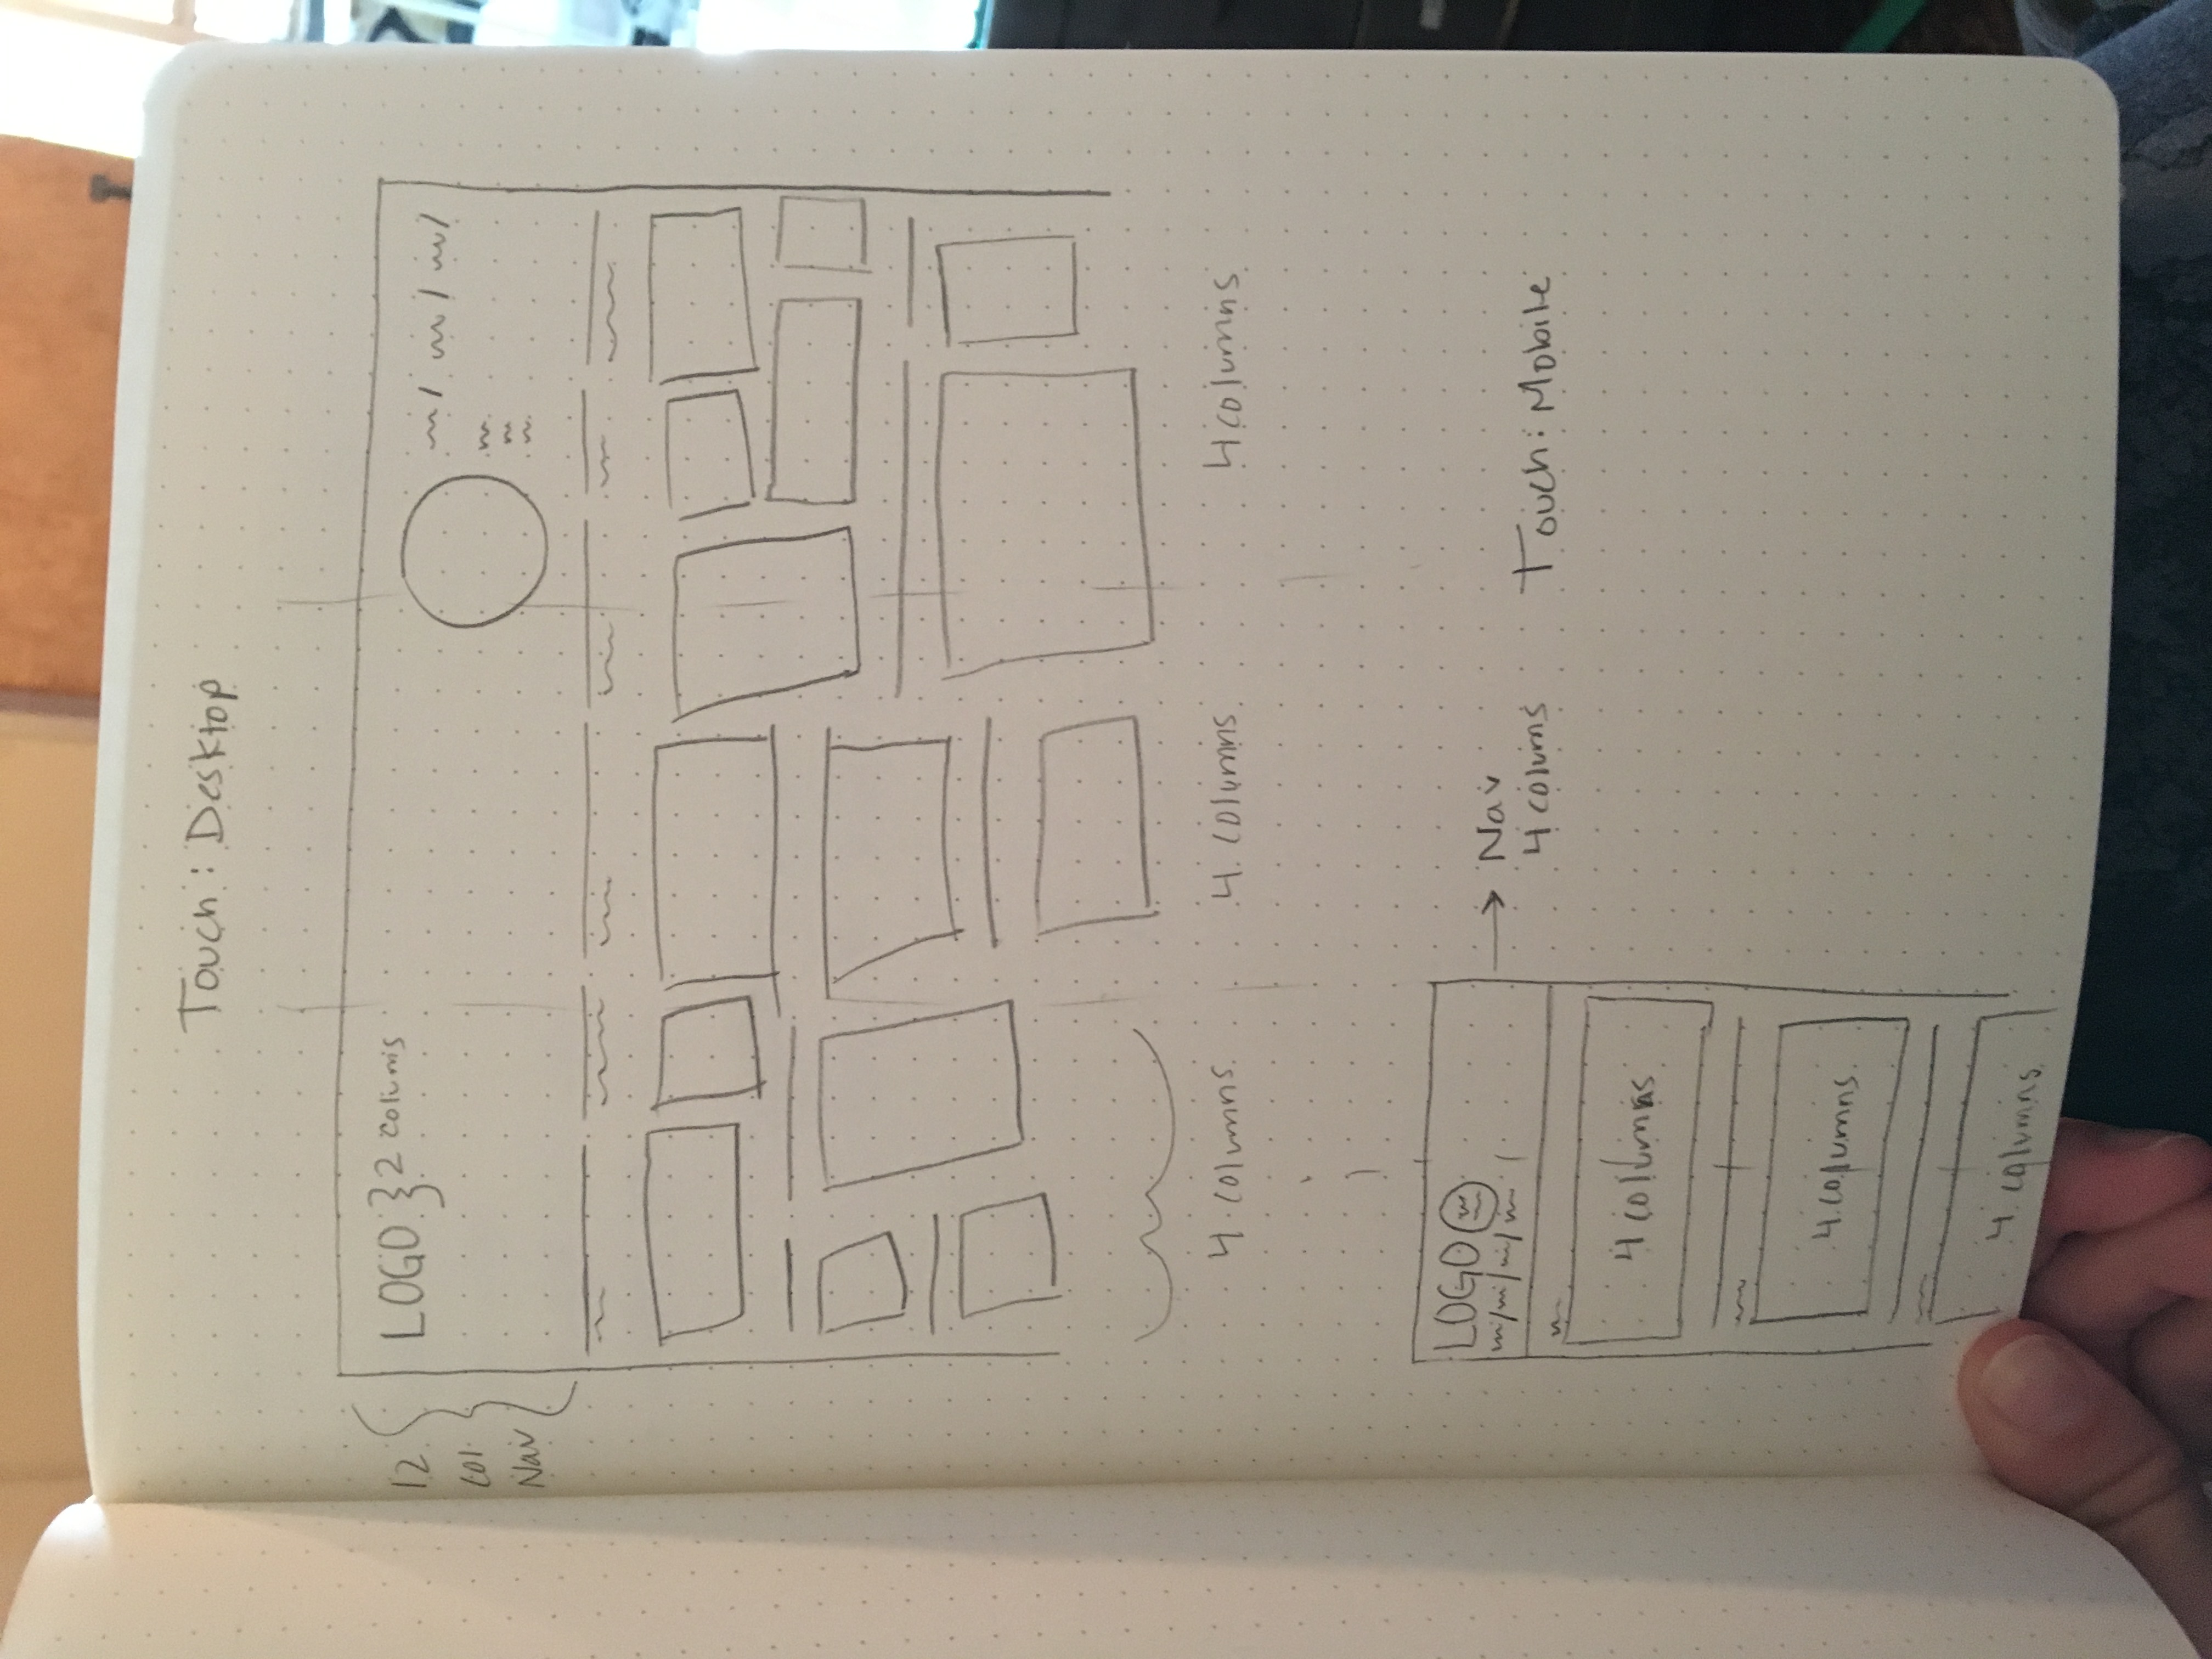 Touch: Desktop
12
Col
Nav
LOGO } 2 colums
4 columns
4 columns
4 columns
LOGO
Nav
4 colums
Touch: Mobile
4 columns
4 columns
4 columns